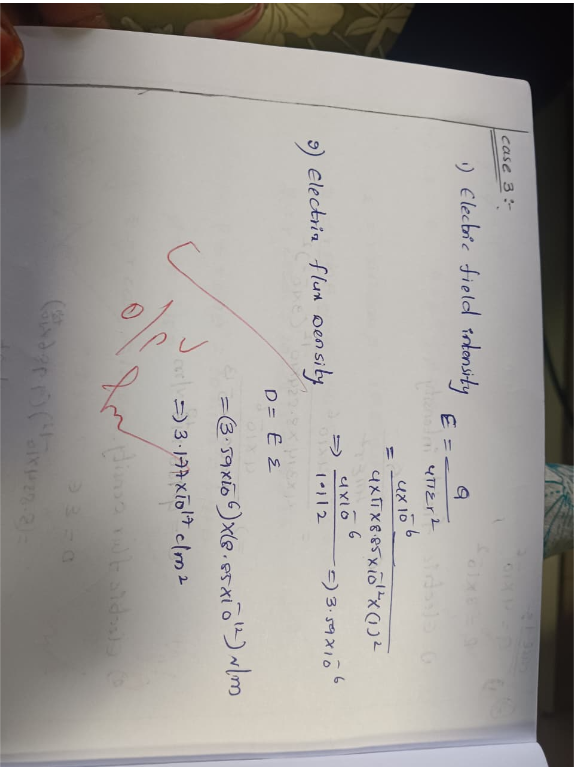 case 3 :-
1) Electric field intensity E = Q / 4πεr²
= 4x10⁻⁶ / 4xπx8.85x10⁻¹²x(1)²
=) 4x10⁻⁶ / 1.0112 =) 3.59x10⁻⁶
2) Electria flux Density
D = E ε
= (3.59x10⁻⁶)x(8.85x10⁻¹²) N/m
=) 3.177x10⁻¹⁷ c/m²